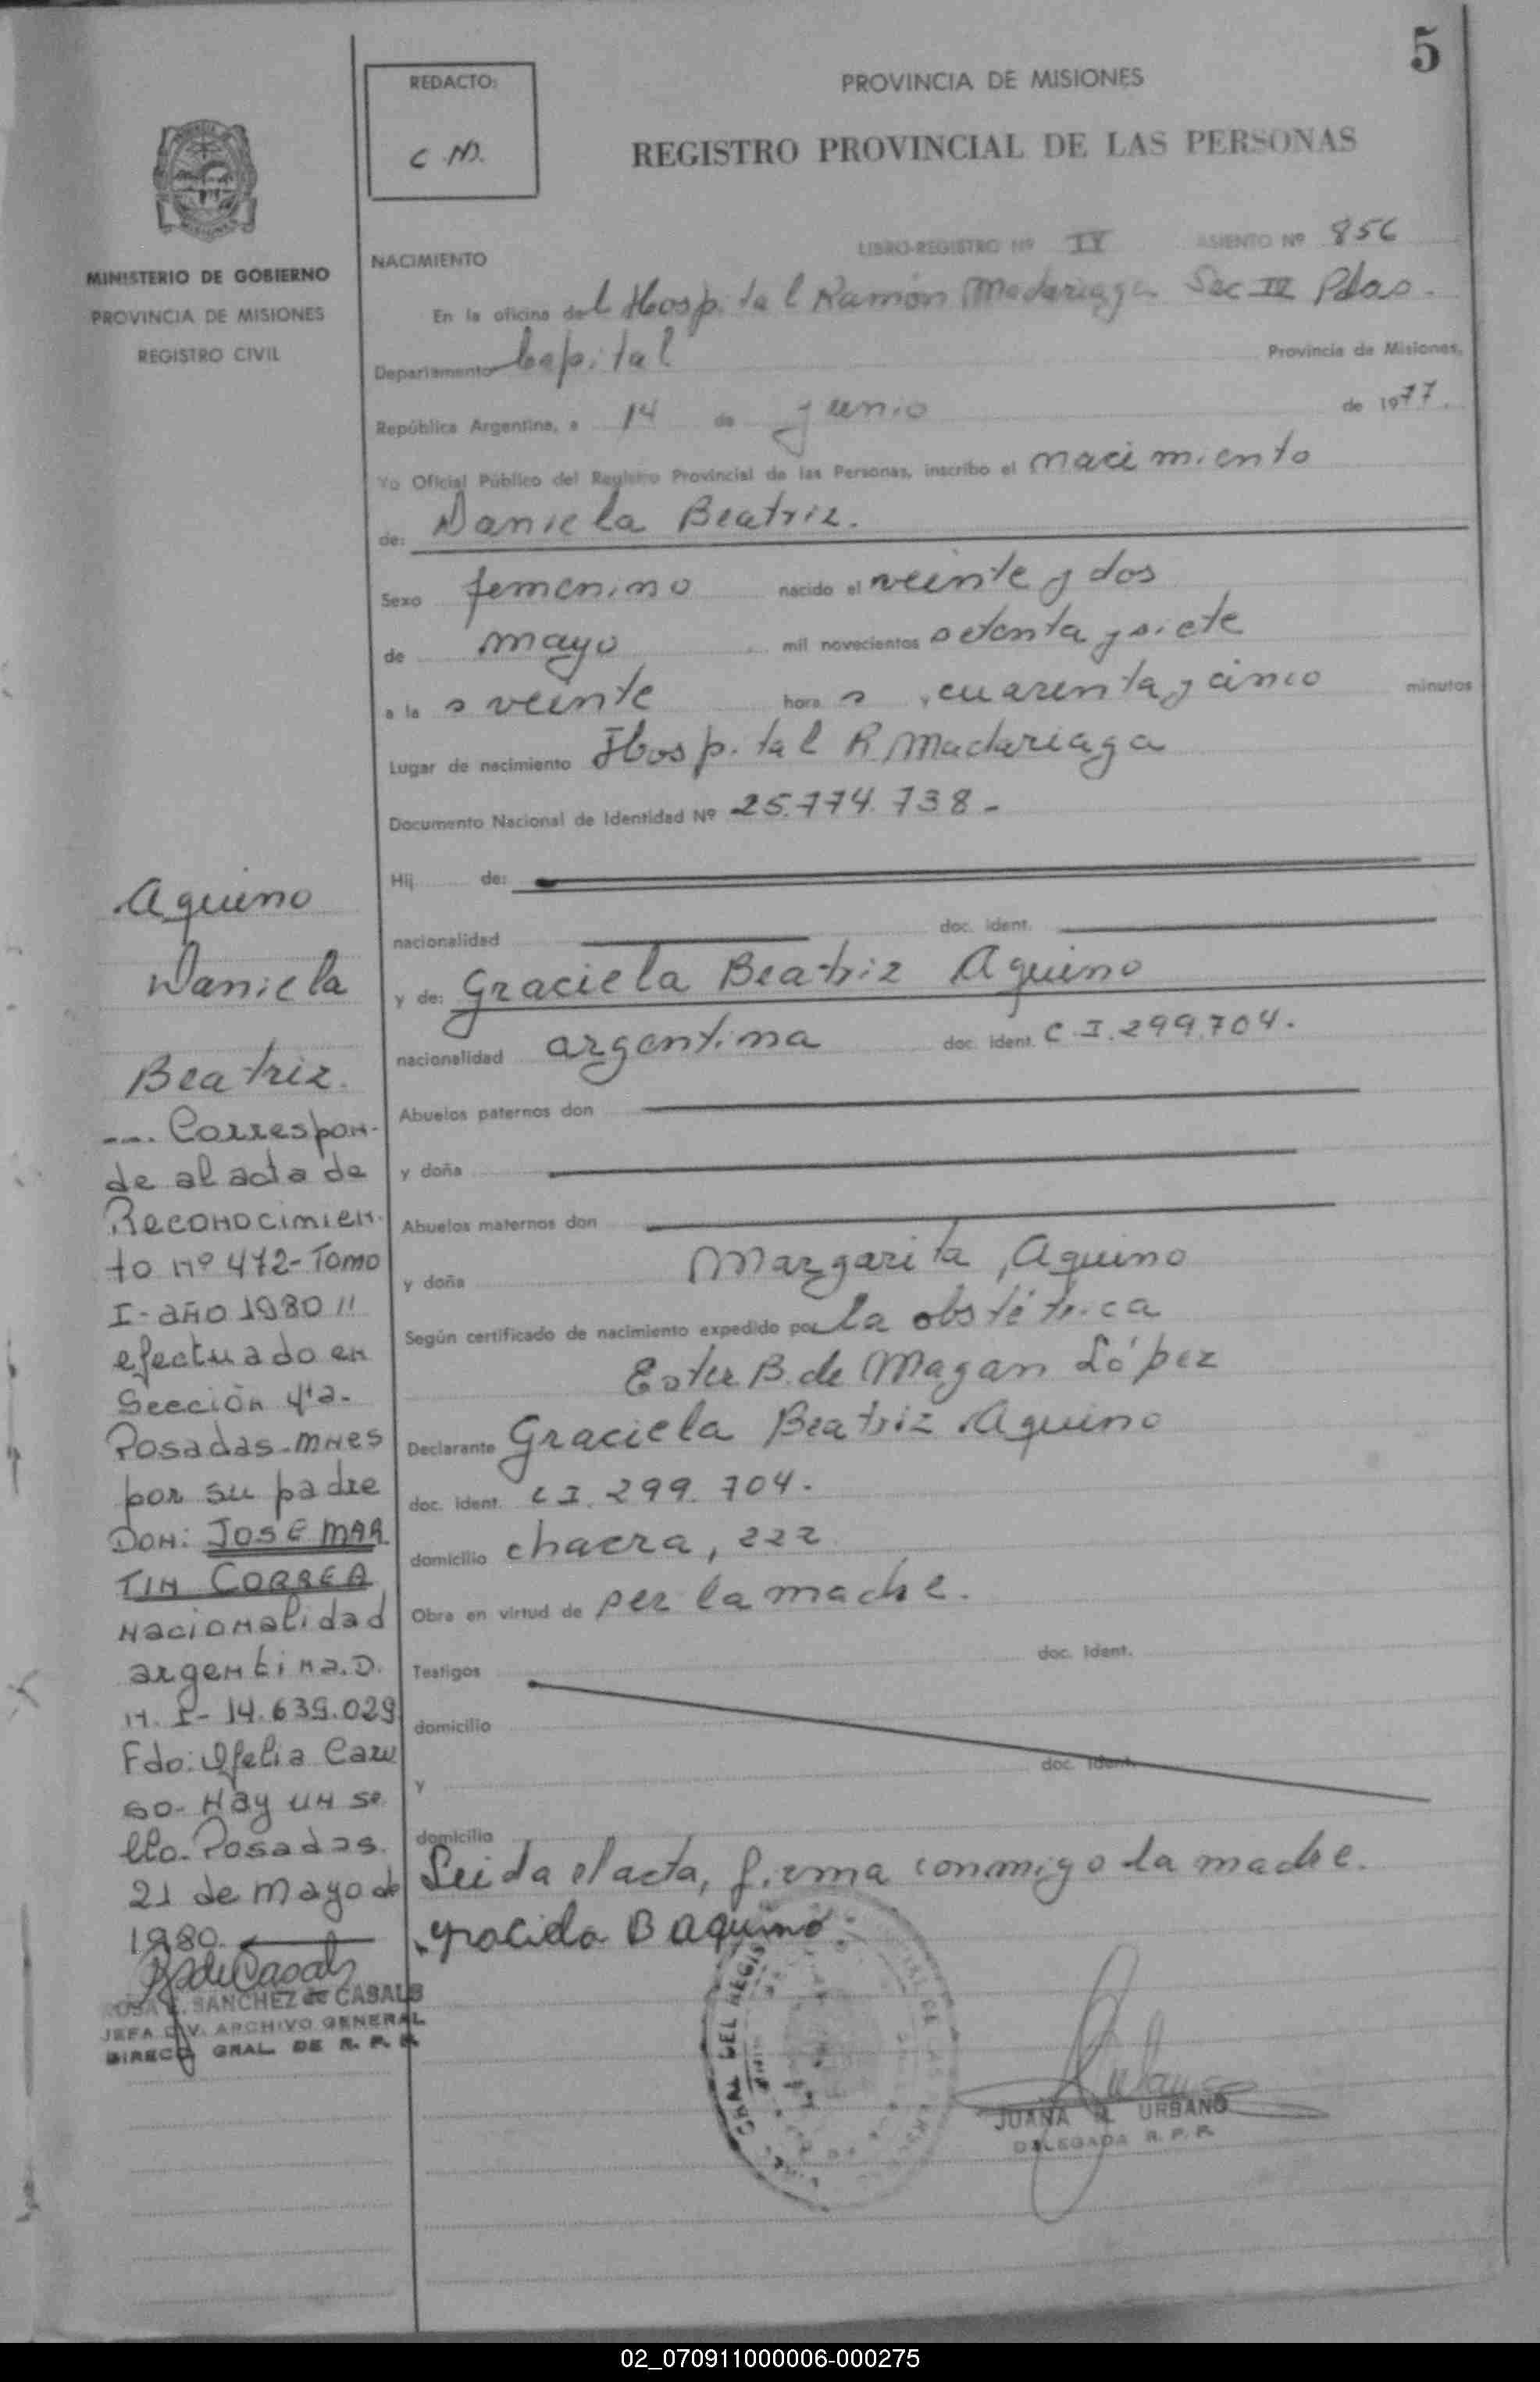 5
REDACTO:
C.N.
PROVINCIA DE MISIONES
REGISTRO PROVINCIAL DE LAS PERSONAS
MINISTERIO DE GOBIERNO
PROVINCIA DE MISIONES
REGISTRO CIVIL
LIBRO-REGISTRO Nº IV ASIENTO Nº 856
NACIMIENTO
En la oficina del Hospital Ramón Madariaga Sec IV Pdas.
Departamento Capital Provincia de Misiones,
República Argentina, a 14 de junio de 1977.
Yo Oficial Público del Registro Provincial de las Personas, inscribo el nacimiento
de: Daniela Beatriz.
Sexo femenino nacido el veinte y dos
de mayo mil novecientos setenta y siete
a la s veinte hora s, cuarenta y cinco minutos
Lugar de nacimiento Hospital R Madariaga
Documento Nacional de Identidad Nº 25.774.738-
Hij de:
nacionalidad doc. ident.
y de: Graciela Beatriz Aquino
nacionalidad argentina doc. ident. C.I. 299.704.
Abuelos paternos don
y doña
Abuelos maternos don
y doña Margarita, Aquino
Según certificado de nacimiento expedido por la obstétrica
Ester B. de Magan López
Declarante Graciela Beatriz Aquino
doc. ident. C I. 299.704.
domicilio chacra, 222
Obra en virtud de per la madre.
Testigos doc. ident.
domicilio
y doc. ident.
domicilio
Leida el acta, firma conmigo la madre.
Graciela B Aquino
JUANA R. URBANO
DELEGADA R. P. P.
Aquino
Daniela
Beatriz.
---. Correspon-
de al acta de
Reconocimien-
to nº 472-Tomo
I-año 1980 //
efectuado en
Sección 4ta-
Posadas-mnes
por su padre
Don: JOSE MAR
TIN CORREA
nacionalidad
argentina. D.
N. I- 14.639.029
Fdo: Ofelia Caru
so- Hay un se
llo. Posadas.
21 de mayo de
1980.
R S de Casals
ROSA E. SANCHEZ de CASALS
JEFA DIV. ARCHIVO GENERAL
DIRECC. GRAL. DE R. P. P.
02_070911000006-000275